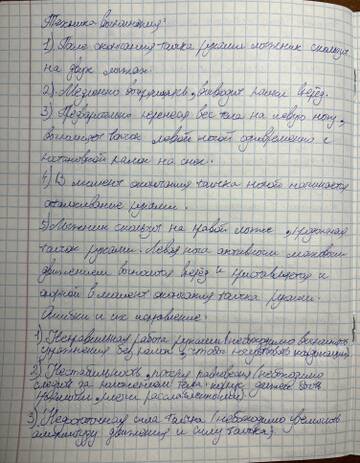 Техника выполнения:
1) После окончания толчка руками лыжник скользит
на двух лыжах.
2) Медленно выпрямляясь, выводит палки вперёд.
3) Предварительно перенеся вес тела на левую ногу,
выполняет толчок левой ногой одновременно с
постановкой палок на снег.
4) В момент окончания толчка ногой начинается
отталкивание руками.
5) Лыжник скользит на правой лыже, продолжая
толчок руками. Левая нога активным маховым
движением выносится вперёд и приставляется к
опорной в момент окончания толчка руками.
Ошибки и их исправление:
1) Неправильная работа руками (необходимо выполнять
упражнения без палок, чтобы почувствовать координацию)
2) Нестабильность, потеря равновесия (необходимо
следить за положением тела: корпус должен быть
наклонён, плечи расслаблены)
3) Недостаточная сила толчка (необходимо увеличить
амплитуду движения и силу толчка).